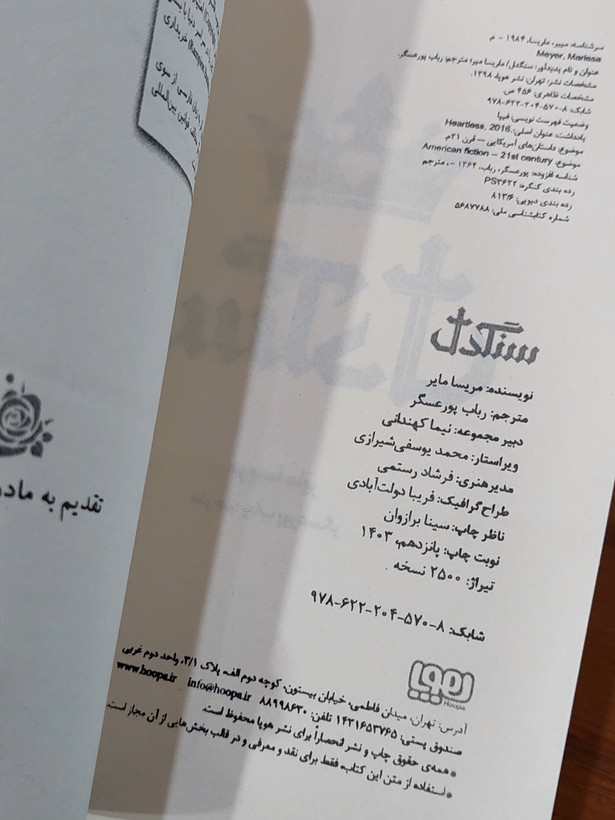 سرشناسه: میر، ماریسا، ۱۹۸۴ - م
Meyer, Marissa
عنوان و نام پدیدآور: سنگدل/ ماریسا میر؛ مترجم: رباب پورعسگر.
مشخصات نشر: تهران: نشر هوپا، ۱۳۹۸.
مشخصات ظاهری: ۴۵۶ ص.
شابک: ۸-۵۷۰-۲۰۴-۶۲۲-۹۷۸
وضعیت فهرست نویسی: فیپا
یادداشت: عنوان اصلی: Heartless, 2016.
موضوع: داستان‌های آمریکایی -- قرن ۲۱م
موضوع: American fiction -- 21st century
شناسه افزوده: پورعسگر، رباب، ۱۳۶۴ -، مترجم
رده بندی کنگره: PS۳۶۲۲
رده بندی دیویی: ۸۱۳/۶
شماره کتابشناسی ملی: ۵۶۸۷۷۸۸
سنگدل
نویسنده: مریسا مایر
مترجم: رباب پورعسگر
دبیر مجموعه: نیما کهندانی
ویراستار: محمد یوسفی‌شیرازی
مدیر هنری: فرشاد رستمی
طراح گرافیک: فریبا دولت‌آبادی
ناظر چاپ: سینا برازوان
نوبت چاپ: پانزدهم، ۱۴۰۳
تیراژ: ۲۵۰۰ نسخه
شابک: ۸-۵۷۰-۲۰۴-۶۲۲-۹۷۸
هوپا
Hoopa
آدرس: تهران، میدان فاطمی، خیابان بیستون، کوچه دوم الف، پلاک ۳/۱، واحد دوم غربی
صندوق پستی: ۱۴۳۱۶۵۳۷۶۵ تلفن: ۸۸۹۹۸۶۳۰ info@hoopa.ir www.hoopa.ir
* همه‌ی حقوق چاپ و نشر انحصاراً برای نشر هوپا محفوظ است.
* استفاده از متن این کتاب، فقط برای نقد و معرفی و در قالب بخش‌هایی از آن مجاز است.
خریداری
فارسی از سوی
قوانین بین‌المللی
تقدیم به مادر